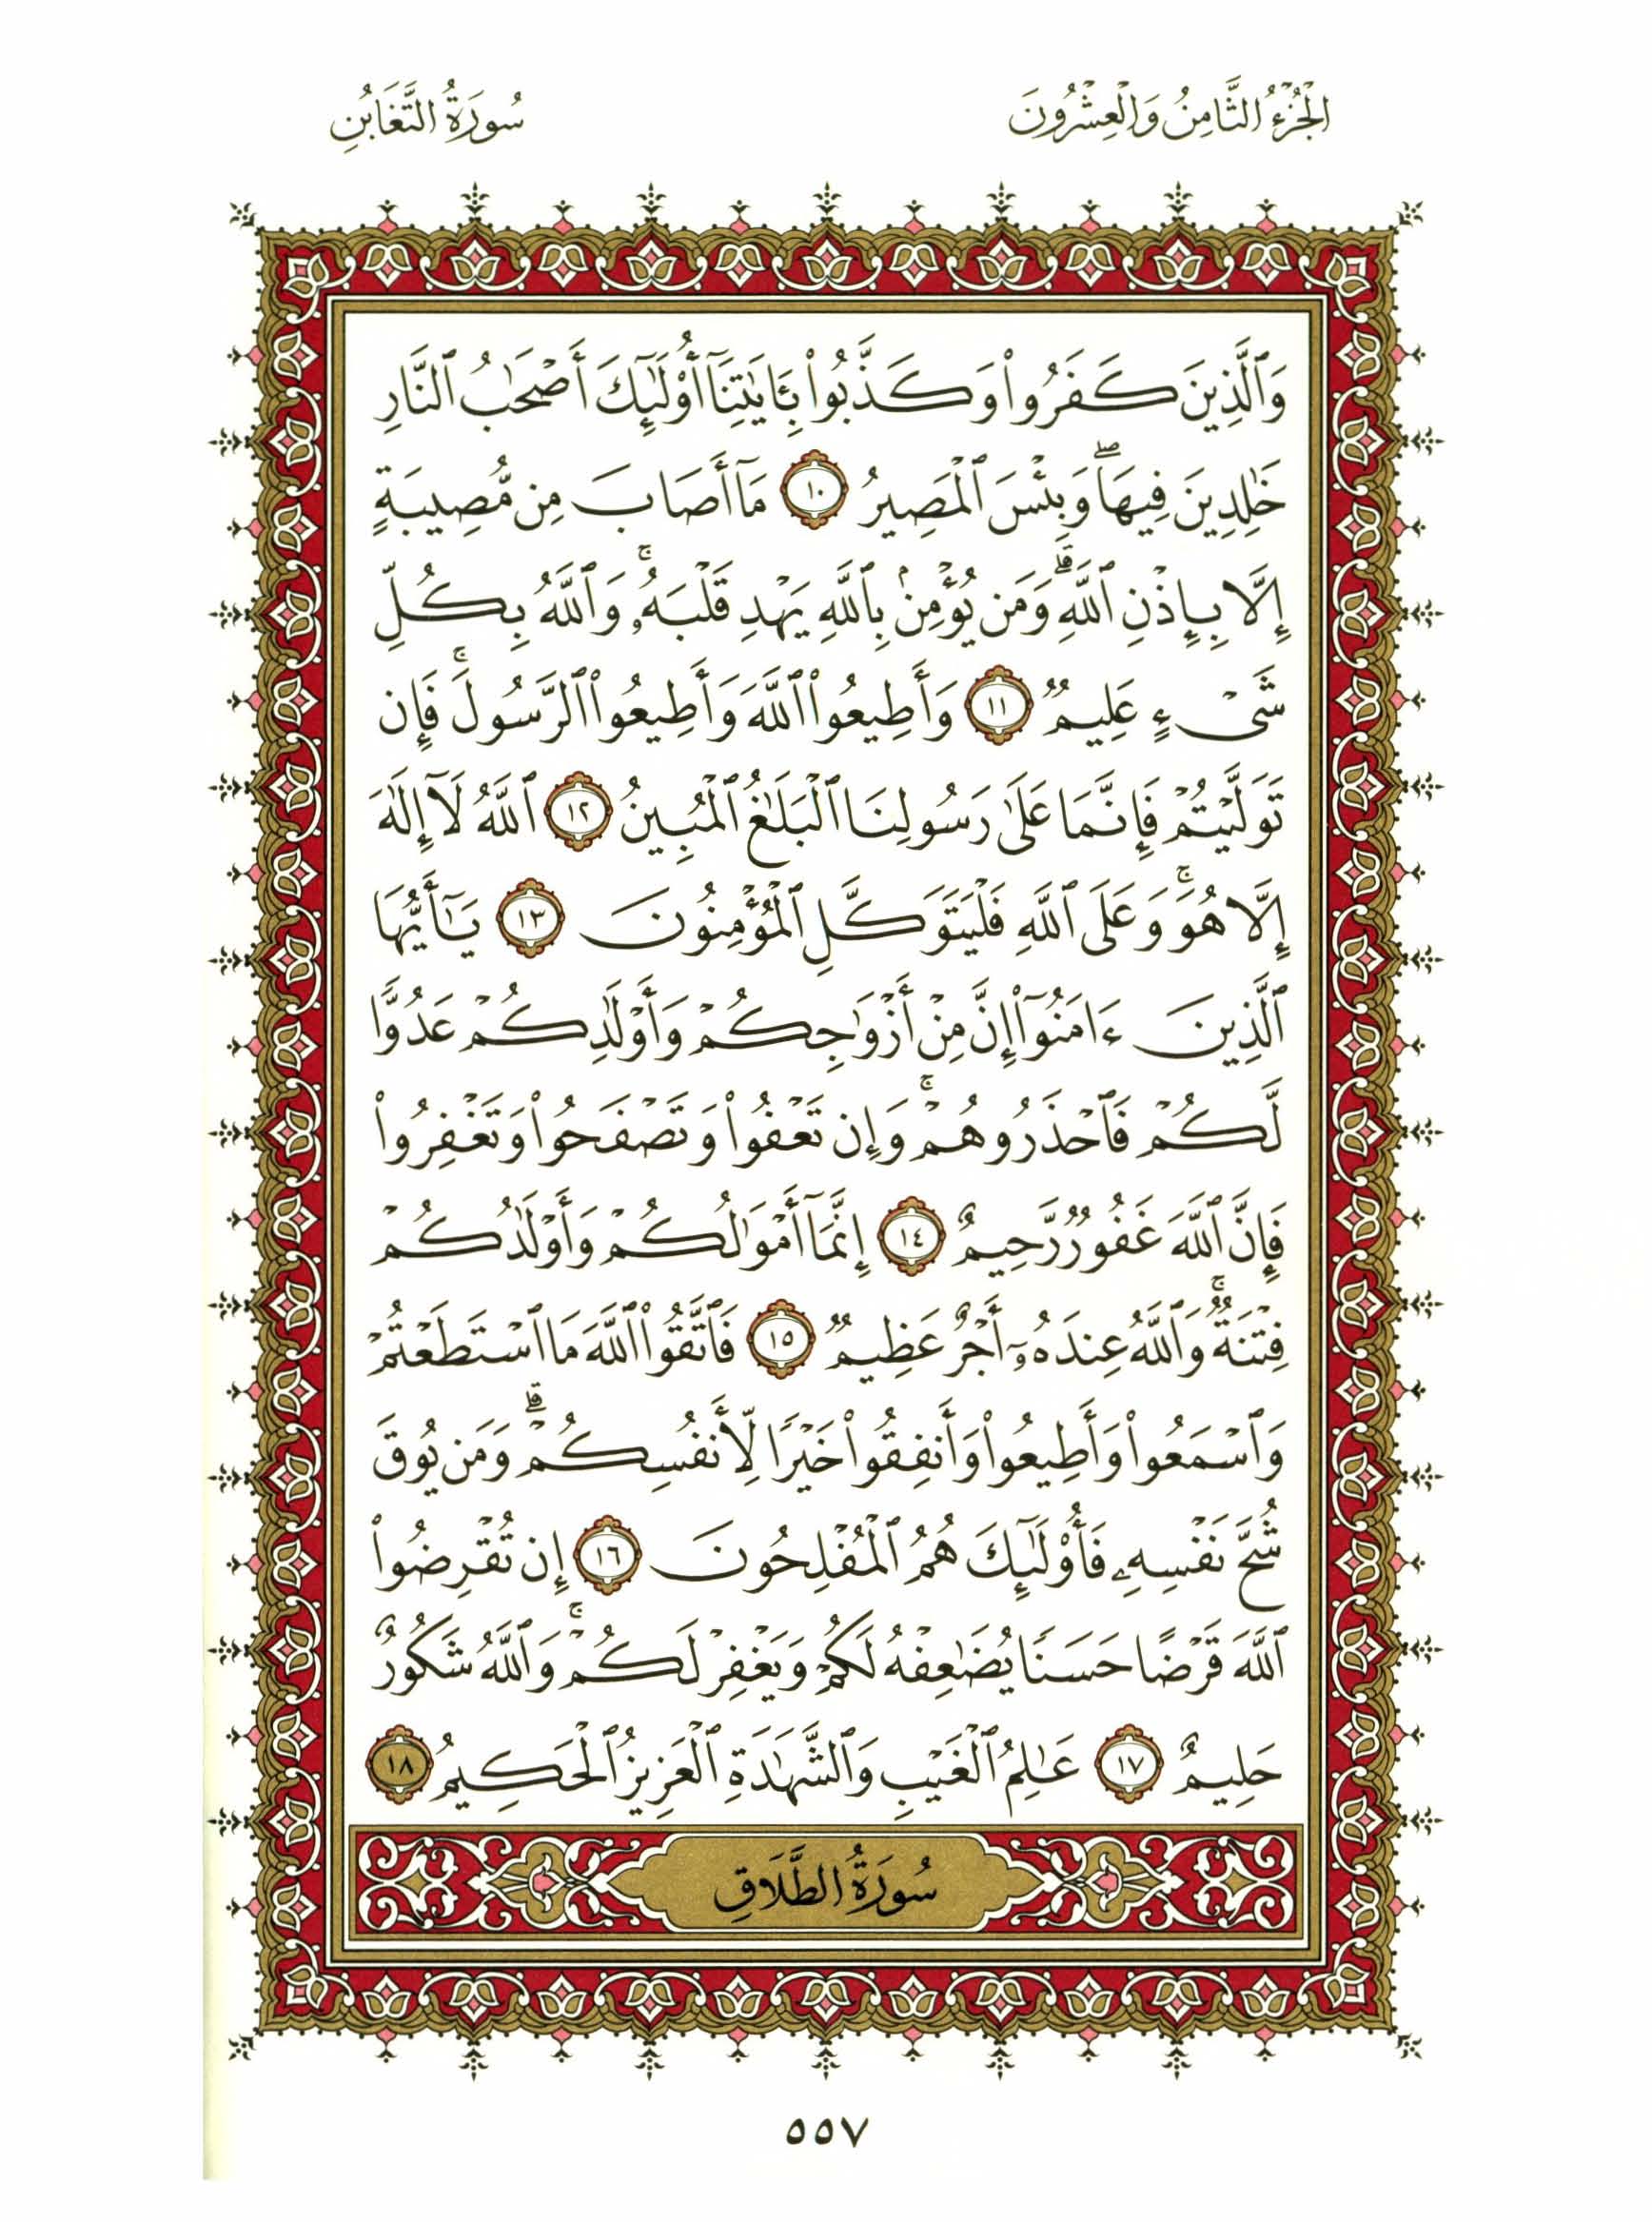 الجُزْءُ الثَّامِنُ وَالْعِشْرُونَ
سُورَةُ التَّغَابُنِ
وَٱلَّذِينَ كَفَرُوا۟ وَكَذَّبُوا۟ بِـَٔايَـٰتِنَآ أُو۟لَـٰٓئِكَ أَصْحَـٰبُ ٱلنَّارِ
خَـٰلِدِينَ فِيهَا ۖ وَبِئْسَ ٱلْمَصِيرُ ١٠ مَآ أَصَابَ مِن مُّصِيبَةٍ
إِلَّا بِإِذْنِ ٱللَّهِ ۗ وَمَن يُؤْمِنۢ بِٱللَّهِ يَهْدِ قَلْبَهُۥ ۚ وَٱللَّهُ بِكُلِّ
شَىْءٍ عَلِيمٌ ١١ وَأَطِيعُوا۟ ٱللَّهَ وَأَطِيعُوا۟ ٱلرَّسُولَ ۚ فَإِن
تَوَلَّيْتُمْ فَإِنَّمَا عَلَىٰ رَسُولِنَا ٱلْبَلَـٰغُ ٱلْمُبِينُ ١٢ ٱللَّهُ لَآ إِلَـٰهَ
إِلَّا هُوَ ۚ وَعَلَى ٱللَّهِ فَلْيَتَوَكَّلِ ٱلْمُؤْمِنُونَ ١٣ يَـٰٓأَيُّهَا
ٱلَّذِينَ ءَامَنُوٓا۟ إِنَّ مِنْ أَزْوَٰجِكُمْ وَأَوْلَـٰدِكُمْ عَدُوًّا
لَّكُمْ فَٱحْذَرُوهُمْ ۚ وَإِن تَعْفُوا۟ وَتَصْفَحُوا۟ وَتَغْفِرُوا۟
فَإِنَّ ٱللَّهَ غَفُورٌ رَّحِيمٌ ١٤ إِنَّمَآ أَمْوَٰلُكُمْ وَأَوْلَـٰدُكُمْ
فِتْنَةٌ ۚ وَٱللَّهُ عِندَهُۥٓ أَجْرٌ عَظِيمٌ ١٥ فَٱتَّقُوا۟ ٱللَّهَ مَا ٱسْتَطَعْتُمْ
وَٱسْمَعُوا۟ وَأَطِيعُوا۟ وَأَنفِقُوا۟ خَيْرًا لِّأَنفُسِكُمْ ۗ وَمَن يُوقَ
شُحَّ نَفْسِهِۦ فَأُو۟لَـٰٓئِكَ هُمُ ٱلْمُفْلِحُونَ ١٦ إِن تُقْرِضُوا۟
ٱللَّهَ قَرْضًا حَسَنًا يُضَـٰعِفْهُ لَكُمْ وَيَغْفِرْ لَكُمْ ۚ وَٱللَّهُ شَكُورٌ
حَلِيمٌ ١٧ عَـٰلِمُ ٱلْغَيْبِ وَٱلشَّهَـٰدَةِ ٱلْعَزِيزُ ٱلْحَكِيمُ ١٨
سُورَةُ الطَّلَاقِ
٥٥٧